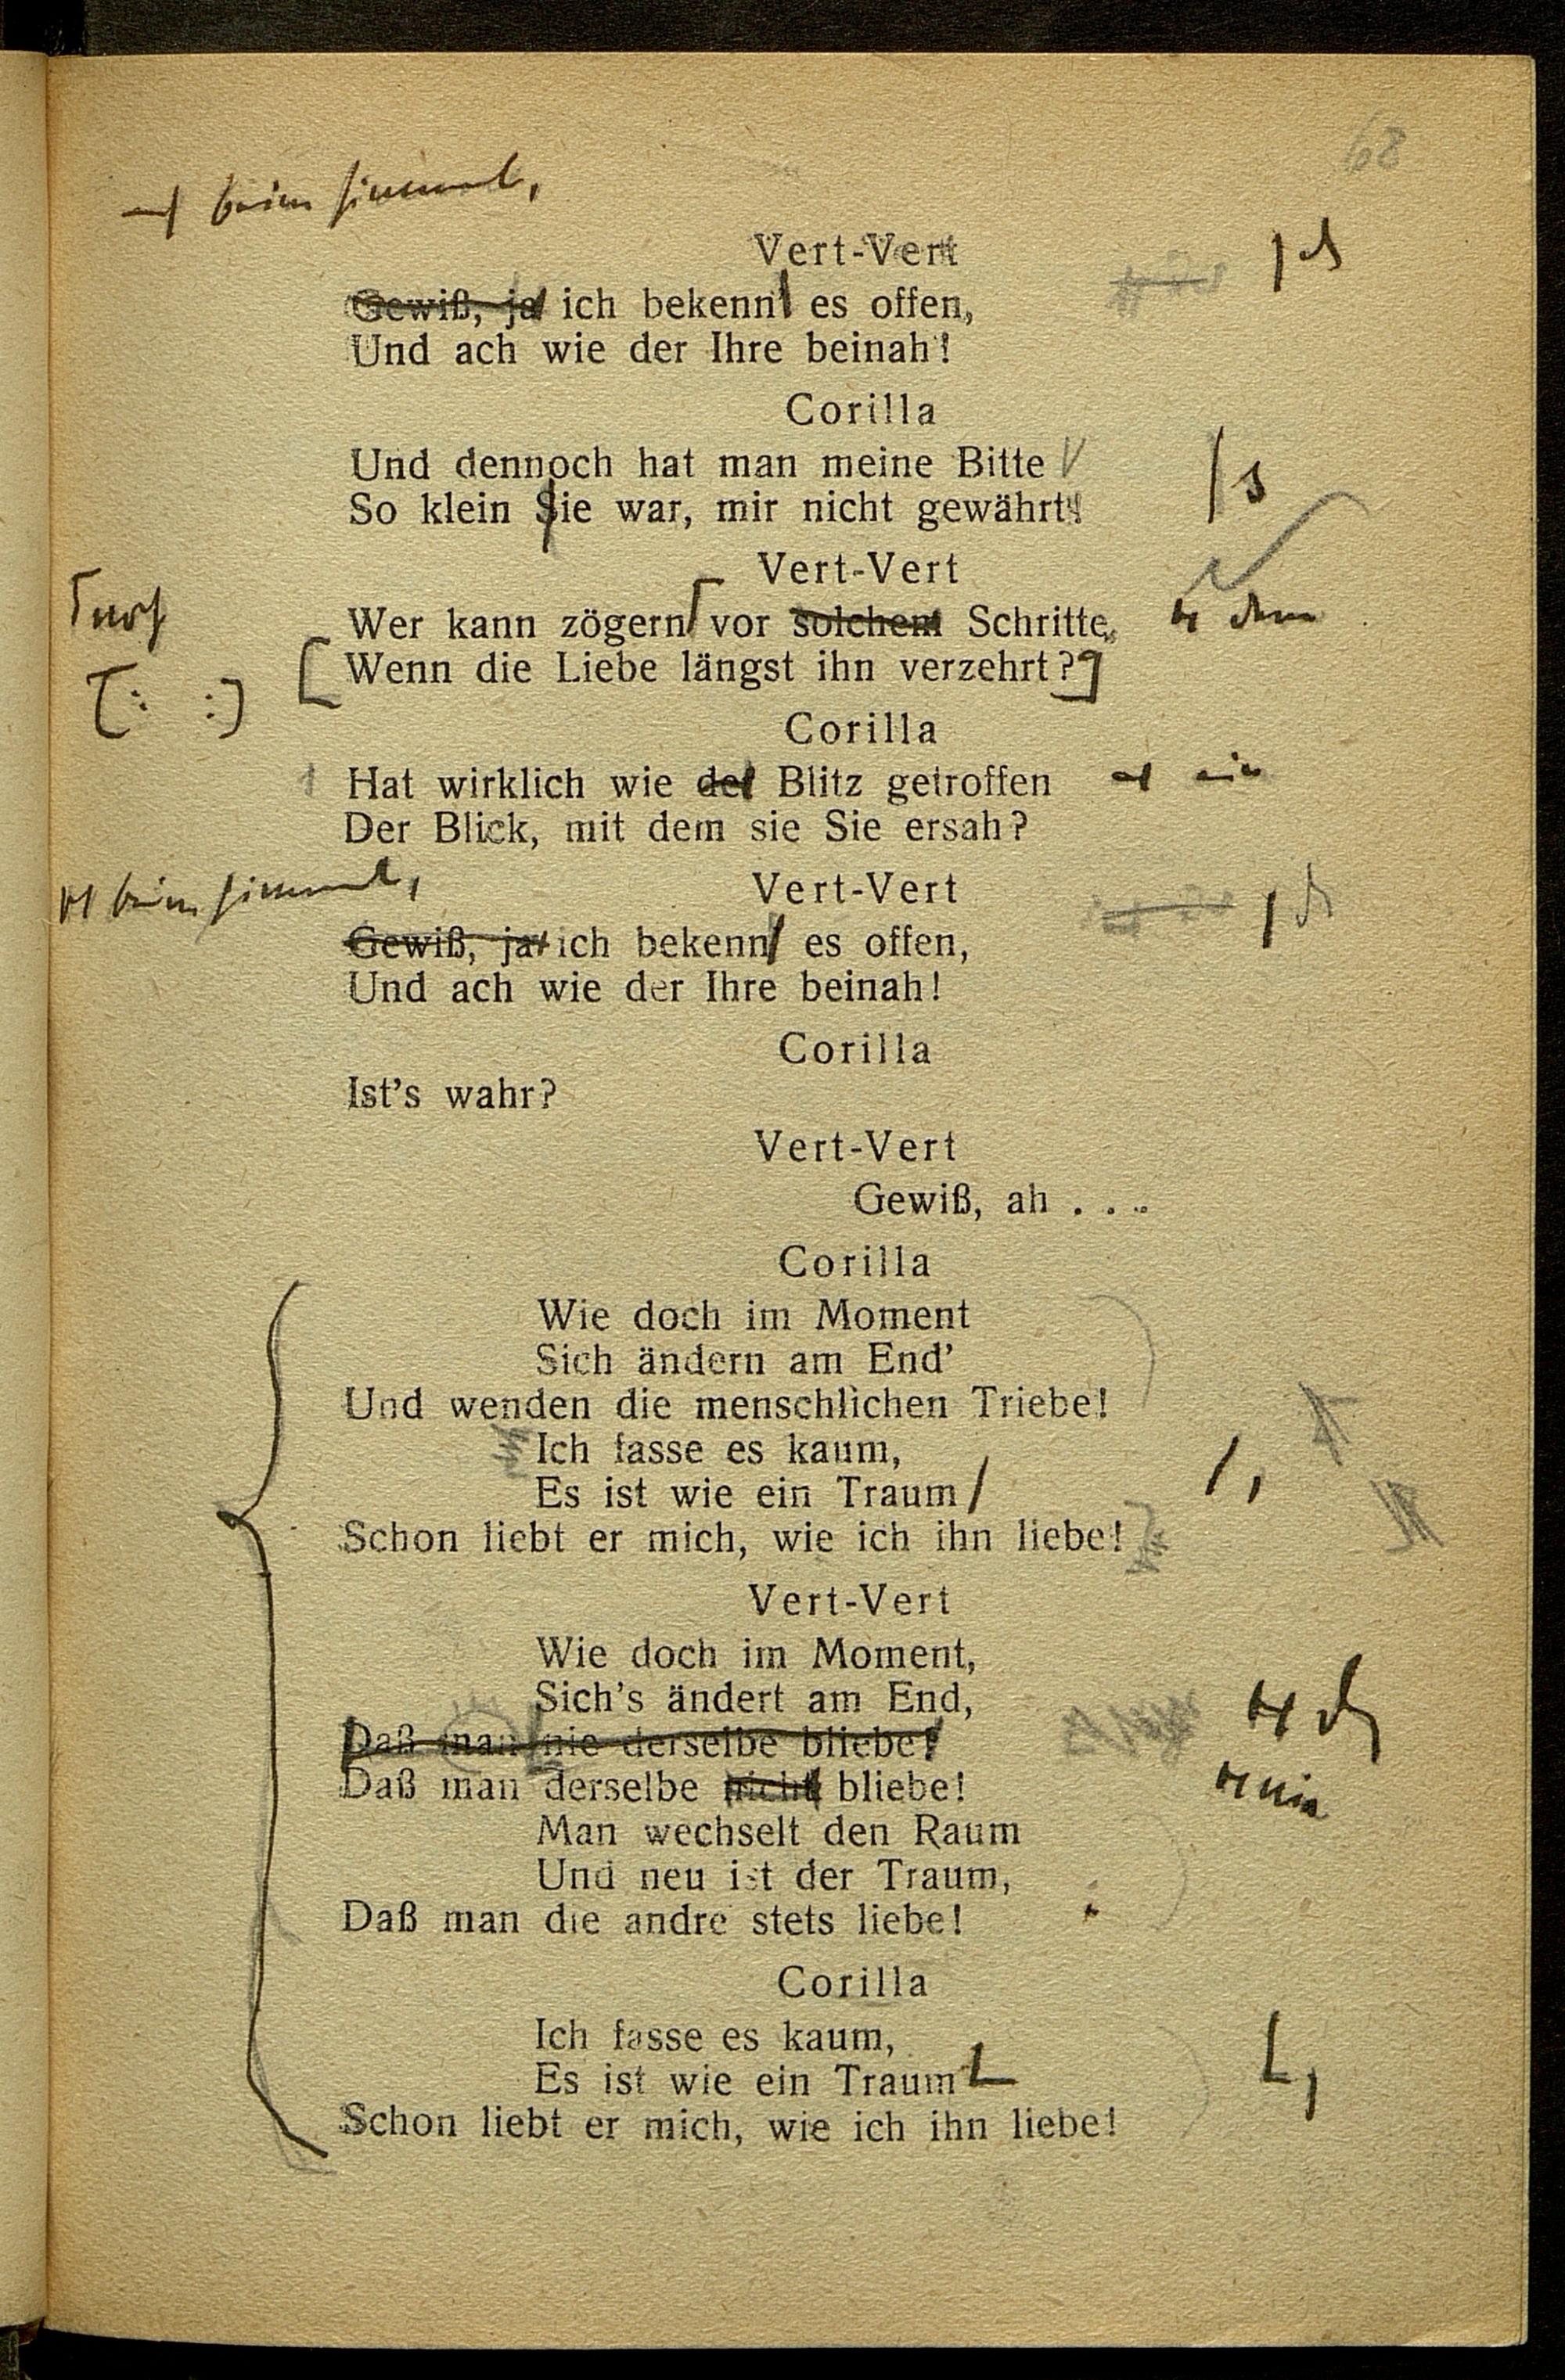 68
beim Himmel,
Vert-Vert
Gewiß, ja ich bekenn es offen,
Und ach wie der Ihre beinah!
Corilla
Und dennoch hat man meine Bitte
So klein Sie war, mir nicht gewährt! s
Vert-Vert
noch
Wer kann zögern vor solchem Schritte, dem
Wenn die Liebe längst ihn verzehrt?
[: :]
Corilla
Hat wirklich wie der Blitz getroffen ein
Der Blick, mit dem sie Sie ersah?
beim Himmel,
Vert-Vert
Gewiß, ja ich bekenn es offen,
Und ach wie der Ihre beinah!
Corilla
Ist's wahr?
Vert-Vert
Gewiß, ah . . .
Corilla
Wie doch im Moment
Sich ändern am End'
Und wenden die menschlichen Triebe!
Ich fasse es kaum,
Es ist wie ein Traum ,
Schon liebt er mich, wie ich ihn liebe!
Vert-Vert
Wie doch im Moment,
Sich's ändert am End,
Daß man nie derselbe bliebe!
Daß man derselbe nicht bliebe! nie
Man wechselt den Raum
Und neu ist der Traum,
Daß man die andre stets liebe!
Corilla
Ich fasse es kaum,
Es ist wie ein Traum ,
Schon liebt er mich, wie ich ihn liebe!